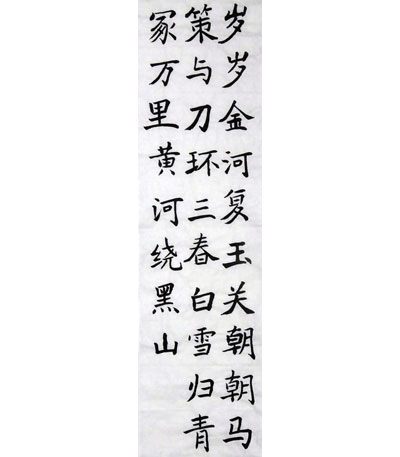 岁岁金河复玉关朝朝马
策与刀环三春白雪归青
冢万里黄河绕黑山